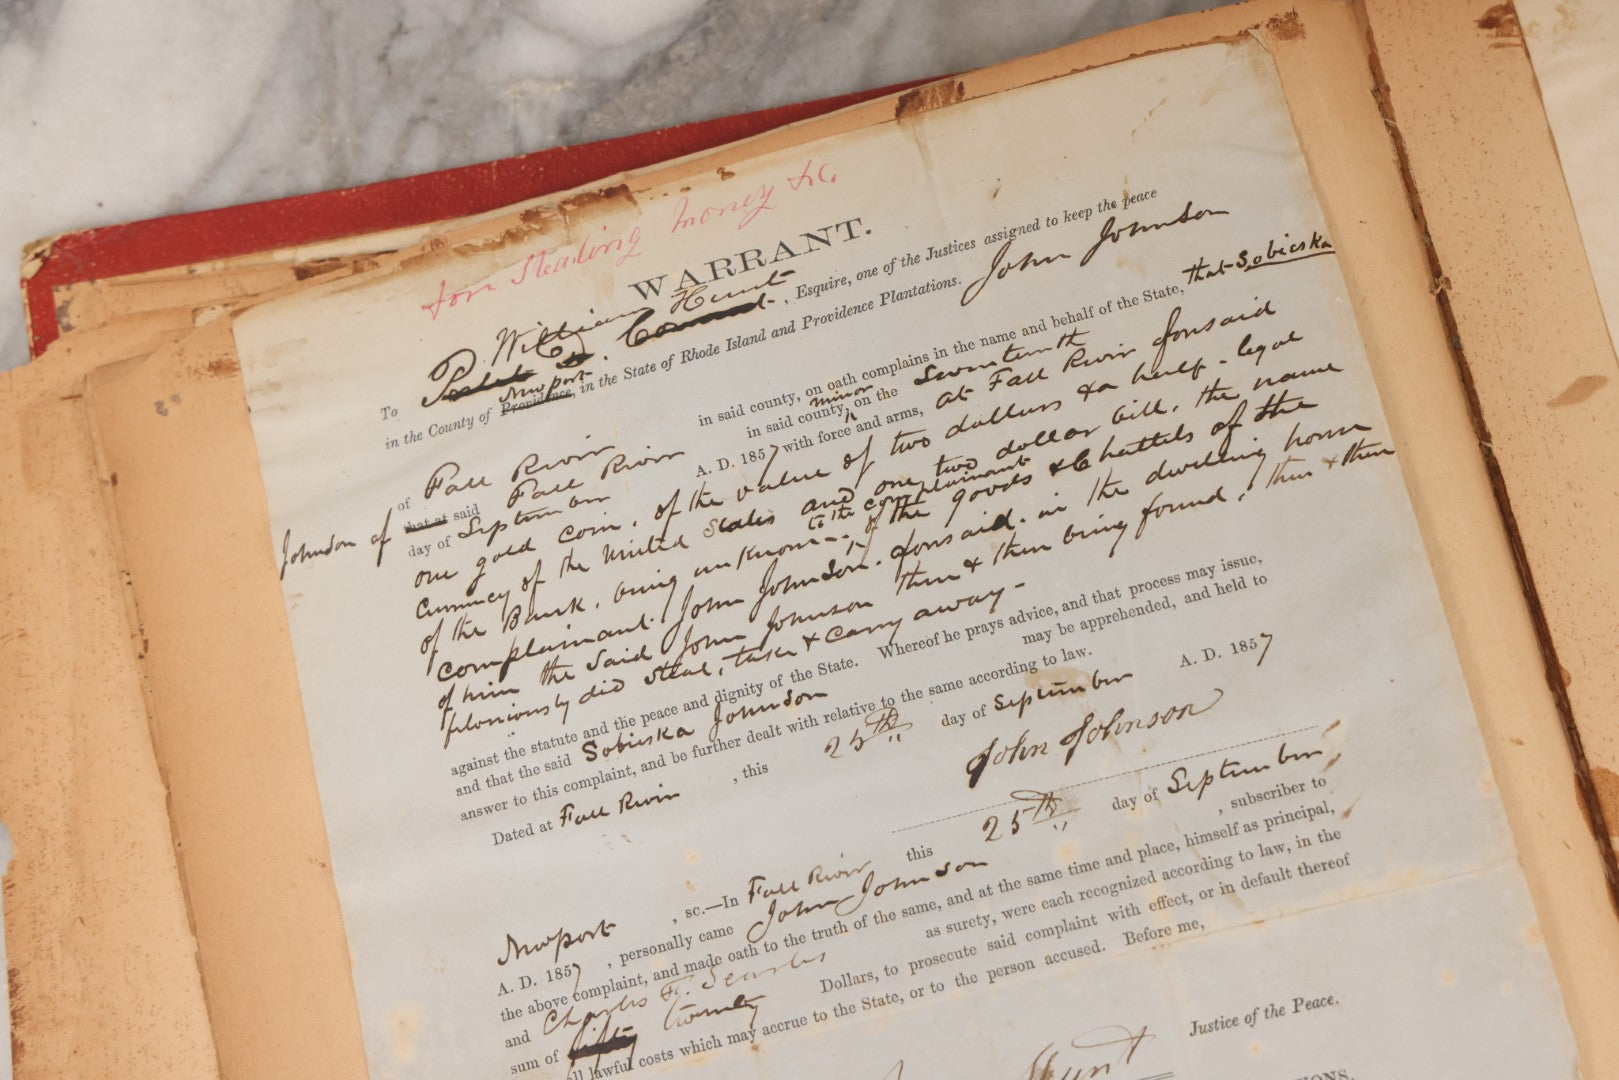 for Stealing money &c.
WARRANT.
William Hunt
To , Esquire, one of the Justices assigned to keep the peace
Newport
in the County of Providence, in the State of Rhode Island and Providence Plantations. John Johnson
of Fall River in said county, on oath complains in the name and behalf of the State, that Sobieska
Johnson of that at said Fall River in said county, minor on the Seventeenth
day of September A. D. 1857 with force and arms, at Fall River aforesaid
one gold coin, of the value of two dollars & a half - legal
currency of the United States and one two dollar bill, the name
of the Bank, being unknown to the complainant of the goods & Chattels of the
complainant John Johnson. aforesaid. in the dwelling house
of him the said John Johnson then & there being found, then & there
feloniously did steal, take & carry away -
against the statute and the peace and dignity of the State. Whereof he prays advice, and that process may issue,
and that the said Sobieska Johnson may be apprehended, and held to
answer to this complaint, and be further dealt with relative to the same according to law.
Dated at Fall River , this 25th day of September A. D. 1857
John Johnson
Newport , sc.—In Fall River this 25th day of September
A. D. 1857 , personally came John Johnson , subscriber to
the above complaint, and made oath to the truth of the same, and at the same time and place, himself as principal,
and Charles F. Searles as surety, were each recognized according to law, in the
sum of fifty twenty Dollars, to prosecute said complaint with effect, or in default thereof
all lawful costs which may accrue to the State, or to the person accused. Before me,
Hunt Justice of the Peace.